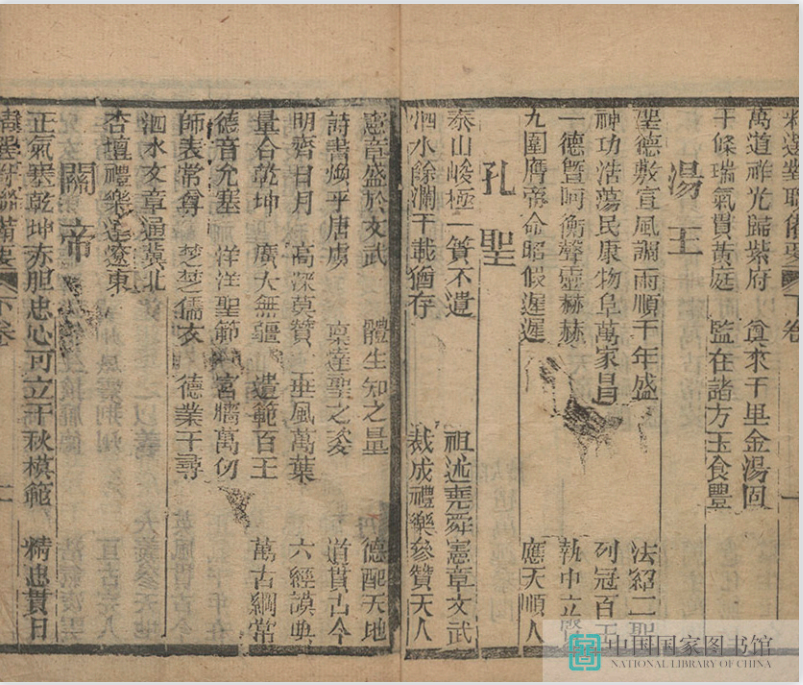 萬道祥光歸紫府 貪來千里金湯固
千條瑞氣貫黃庭 監在諸方玉食豐
湯王
聖德敷宣風調雨順千年盛 法紹二聖
神功浩蕩民康物阜萬家昌 列冠百王
一德曁阿衡聲靈赫赫 執中立
九圍膺帝命昭假遲遲 應天順人
孔聖
泰山峻極一簣不遺 祖述堯舜憲章文武
泗水餘瀾千載猶存 裁成禮樂參贊天人
憲章盛於文武 體生知之量 德配天地
詩書煥乎唐虞 稟達聖之姿 道貫古今
明齊日月 高深莫贊 垂風萬葉 六經謨典
量合乾坤 廣大無疆 遺範百王 萬古綱常
德音允塞 洋洋聖節 宮牆萬仞
師表常尊 楚楚儒衣 德業千尋
泗水文章通冀北
杏壇禮樂達遼東
關帝
正氣塞乾坤赤胆忠心可立千秋模範 精忠貫日
下卷
中国国家图书馆
NATIONAL LIBRARY OF CHINA